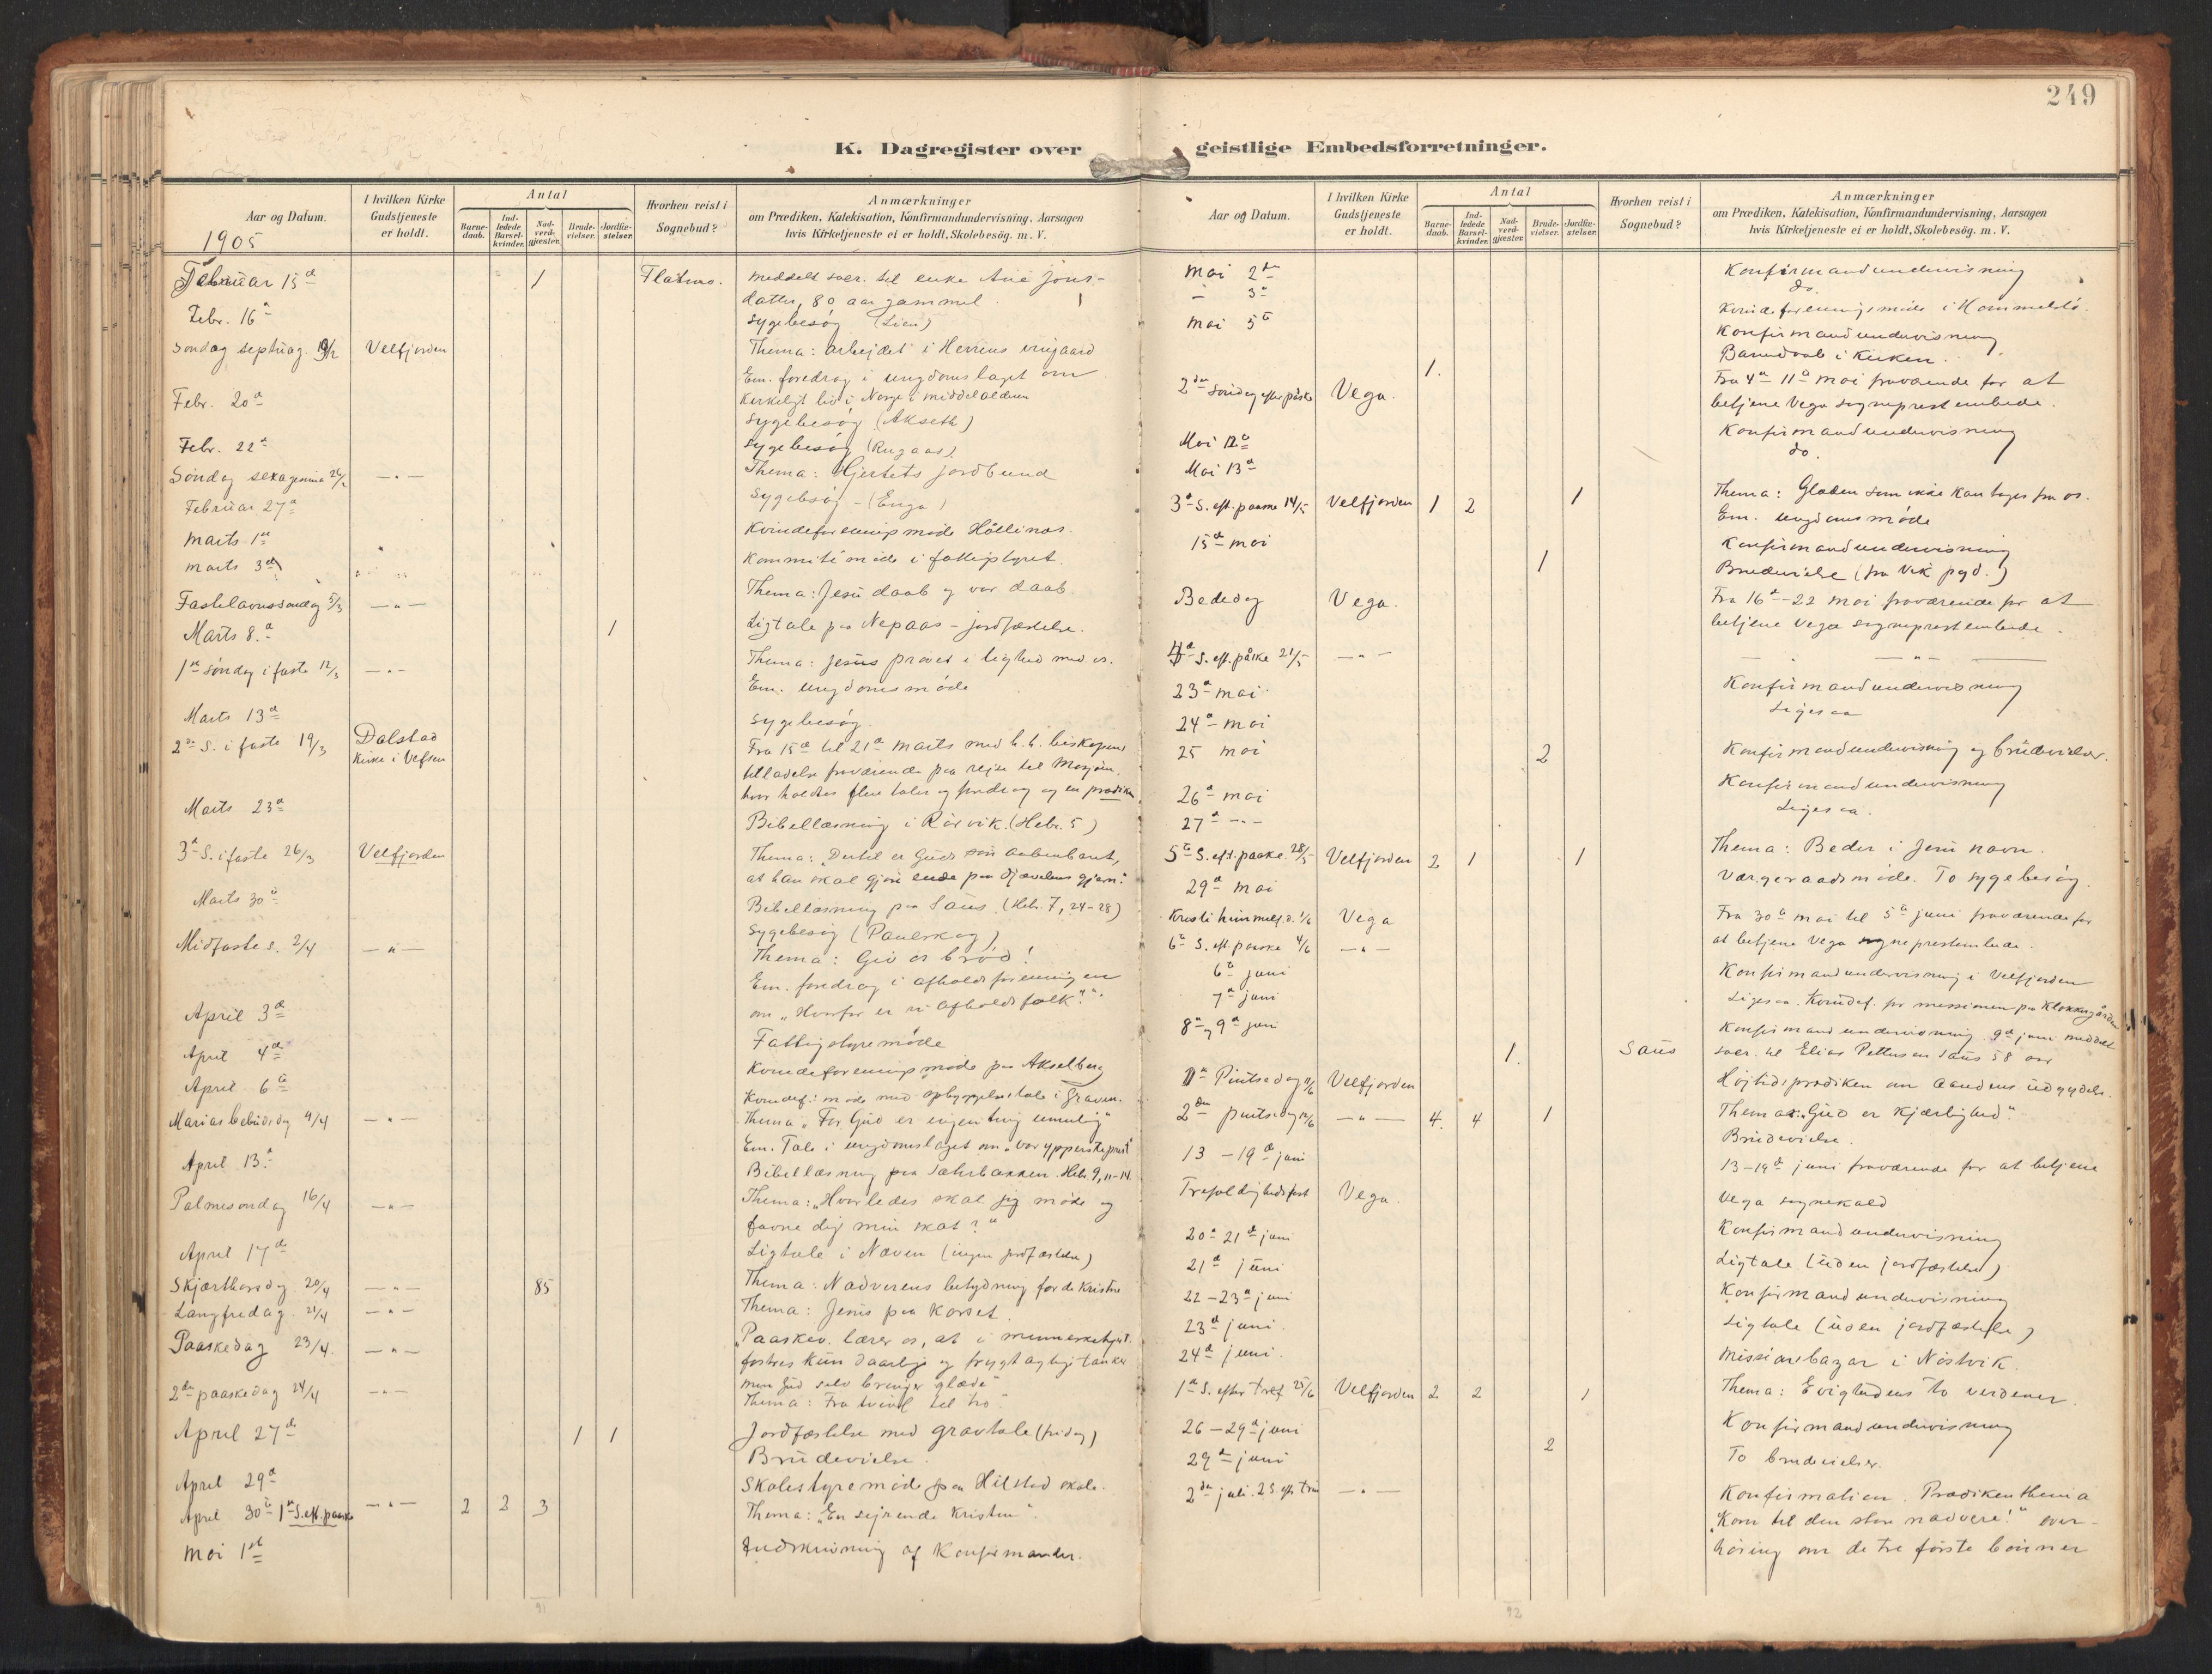 249
K. Dagregister over
Aar og Datum.
I hvilken Kirke Gudstjeneste er holdt.
Antal
Barnedaab.
Indledede Barselkvinder.
Nadverdgjester.
Brudevielser.
Jordfæstelser.
Hvorhen reist i Sognebud?
Anmærkninger
om Prædiken, Katekisation, Konfirmandundervisning, Aarsagen
hvis Kirketjeneste ei er holdt, Skolebesög. m. V.
1905
Februar 15d 1 meddelt sacr. til enke Ane Jons-
datter, 80 aar gammel. 1
Febr. 16d Sygebesøg (Lien)
Søndag septuag. 19/2 Velfjorden Thema: arbejdet i Herrens vingaard
Em. foredrag i ungdomslaget om
Febr. 20d Kirkeligt liv i Norge i middelalderen
Sygebesøg (Akseth)
Febr. 22d Sygebesøg (Rugaas)
Søndag sexagesima 26/2 —"— Thema: Hjertets jordbund
Februar 27d Sygebesøg - (Enga)
Marts 1st Kvindeforeningsmøde
Marts 3d Kommitémøde i fattigstyret.
Fastelavnssøndag 5/3 —"— Thema: Jesu daab og vor daab.
Marts 8.d 1 Ligtale paa Nepaas - jordfæstelse.
1st Søndag i faste 12/3 —"— Thema: Jesus prøvet i lighed med os.
Em. ungdomsmøde
Marts 13d Sygebesøg.
2den S. i faste 19/3 Dolstad Kirke i Vefsen Fra 15d til 21d Marts med h. h. biskopens
tilladelse fraværende paa rejse til Mosjøen,
hvor holdtes flere taler og foredrag og en prædiken
Marts 23d Bibellæsning i Rørvik. (Hebr. 5)
3d S. i faste 26/3 Velfjorden Thema: "Dertil er Guds søn aabenbaret,
at han skal gjøre ende paa djævelens gjern."
Marts 30d Bibellæsning paa Saus. (Hebr. 7, 24-28)
Sygebesøg (Paulskog)
Midfaste s. 2/4 —"— Thema: Giv os brød!
Em. foredrag i afholdsforeningen
om "Hvorfor er vi afholdsfolk?"
April 3d Fattigstyremøde
April 4d Kvindeforeningsmøde paa Akselberg
April 6te Kvindef. møde med opbyggelsestale i Graven.
Marias bebudsdag 9/4 —"— Thema "For Gud er ingen ting umulig"
Em. Tale i ungdomslaget om "vor ypperstepræst"
April 13d Bibellæsning paa Hebr. 9, 11-14
Palmesøndag 16/4 —"— Thema: "Hvorledes skal jeg møde og
favne dig min skat?"
April 17d Ligtale i Næven (ingen jordfæstelse)
Skjærthorsdag 20/4 —"— 85 Thema: Nadverens betydning for de kristne
Langfredag 21/4 —"— Thema: Jesus paa Korset.
Paaskedag 23/4. —"— "Paaskev. lærer os, at i menneskehjert.
fostres kun daarlige og frygtagtige tanker
men Gud selv bringer glæde"
2den paaskedag 24/4 —"— Thema: Fra tvivl til tro.
April 27d 1 1 Jordfæstelse med gravtale
Brudevielse.
April 29d Skolestyremøde paa Hilstad skole.
April 30te 1st S. eft. paaske —"— 2 2 3 Thema: "En sejrende Kristen"
Mai 1st Indskrivning af Konfirmander.
91
geistlige Embedsforretninger.
Aar og Datum.
I hvilken Kirke Gudstjeneste er holdt.
Antal
Barnedaab.
Indledede Barselkvinder.
Nadverdgjester.
Brudevielser.
Jordfæstelser.
Hvorhen reist i Sognebud?
Anmærkninger
om Prædiken, Katekisation, Konfirmandundervisning, Aarsagen
hvis Kirketjeneste ei er holdt, Skolebesög. m. V.
Mai 2den Konfirmandundervisning
— 3d do.
Kvindeforeningsmøde i Hommelstø.
Mai 5te Konfirmandundervisning
1. Barnedaab i Kirken.
2den Søndag efter påske Vega. Fra 4d - 11d Mai fraværende for at
betjene Vega sogneprestembede.
Mai 12d Konfirmandundervisning
Mai 13d do.
3d S. eft. paaske 14/5 Velfjorden 1 2 1 Thema: Glæden som ikke kan tages fra os.
Em. ungdomsmøde
15d mai Konfirmandundervisning
1 Brudevielse (fra Vik pgd.)
Bededag Vega. Fra 16d - 22 mai fraværende for at
betjene Vega sogneprestembede.
4d S. eft. påske 21/5 —"— —"—
23d mai Konfirmandundervisning
24d mai Ligesaa
25 mai 2 Konfirmandundervisning og brudevielser.
26d mai Konfirmandundervisning
27d —"— Ligesaa.
5te S. eft. paaske. 28/5 Velfjorden 2 1 1 Thema: Beder i Jesu navn.
29d mai Værgeraadsmøde. To sygebesøg.
Kristi himmelf. d. 1/6 Vega Fra 30d mai til 5te juni fraværende for
6te S. eft. paaske 4/6 —"— at betjene Vega sogneprestembede.
6te juni Konfirmandundervisning i Velfjorden
7d juni Ligesaa. Kvindef. for missionen paa Klokkergården
8d og 9d juni Konfirmandundervisning. 9d juni meddelt
1. Saus sacr. til Elias Pettersen Saus 58 aar
1st Pintsedag 11/6 Velfjorden Højtidsprædiken om Aandens udgydelse.
2den pintsedag 12/6 —"— 4. 4 1 Thema: "Gud er kjærlighed"
Brudevielse.
13 - 19d juni 13-19d juni fraværende for at betjene
Trefoldighedsfest Vega. Vega sognekald
20d 21d juni Konfirmandundervisning
21d juni Ligtale (uden jordfæstelse)
22 - 23d juni Konfirmandundervisning
23d juni. Ligtale (uden jordfæstelse)
24d juni. Missionsbazar i Nøstvik.
1st S. efter tref 25/6 Velfjorden 2 2 1 Thema: Evighedens to verdener.
26 - 29d juni Konfirmandundervisning
29d juni 2 To brudevielser.
2den juli. 2 S. eft Trin —"— Konfirmation. Prædikenthema
"Kom til den store nadvere!" over-
høring om de tre første bønner
92